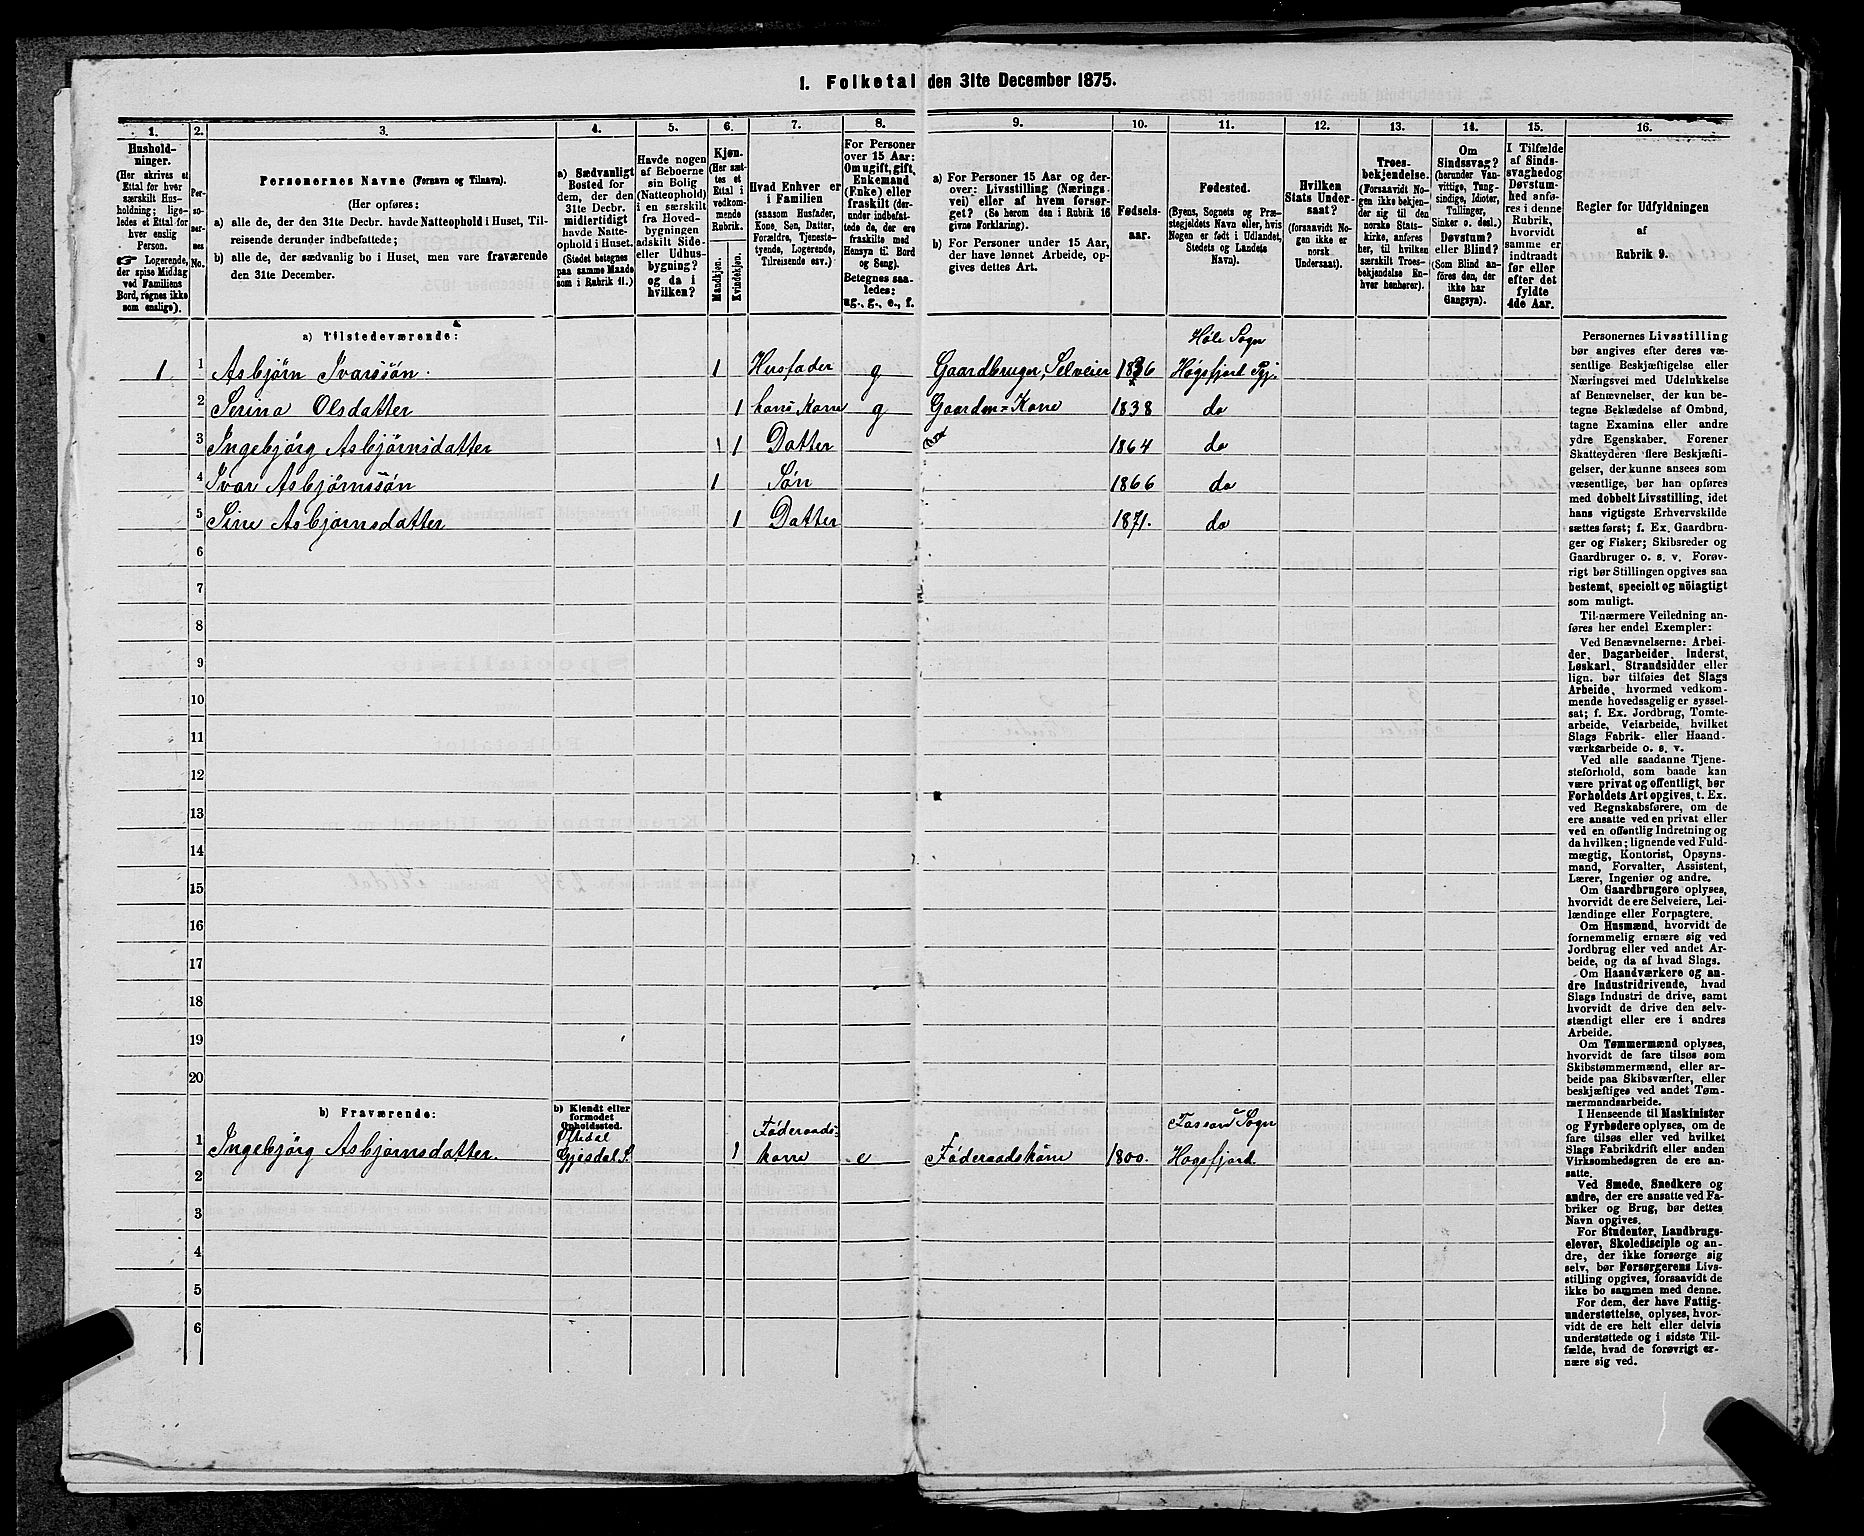 1. Folketal den 31te December 1875.
1. 2. 3. 4. 5. 6. 7. 8. 9. 10. 11. 12. 13. 14. 15. 16.
Hushold-
ninger.
(Her skrives et
Ettal for hver
særskilt Hus-
holdning; lige-
ledes et Ettal for
hver enslig
Person.
☛ Logerende,
der spise Middag
ved Familiens
Bord, regnes ikke
som enslige).
Per-
so-
ner-
nes
No.
Personernes Navne (Fornavn og Tilnavn).
(Her opføres:
a) alle de, der den 31te Decbr. havde Natteophold i Huset, Til-
reisende derunder indbefattede;
b) alle de, der sædvanlig bo i Huset, men vare fraværende
den 31te December.
a) Sædvanligt
Bosted for
dem, der den
31te Decbr.
midlertidigt
havde Natte-
ophold i Huset.
(Stedet betegnes
paa samme Maade
som i Rubrik 11.)
Havde nogen
af Beboerne
sin Bolig
(Natteophold)
i en særskilt
fra Hoved-
bygningen
adskilt Side-
eller Udhus-
bygning?
og da i
hvilken?
Kjøn.
(Her sæt-
tes et
Ettal i
vedkom-
mende
Rubrik.
Mandkjøn.
Kvindekjøn.
Hvad Enhver er
i Familien
(saasom Husfader,
Kone, Søn, Datter,
Forældre, Tjeneste-
tyende, Logerende,
Tilreisende osv.)
For Personer
over 15 Aar:
Om ugift, gift,
Enkemand
(Enke) eller
fraskilt (der-
under indbefat-
tede de, der ere
fraskilte med
Hensyn til Bord
og Seng).
Betegnes saa-
ledes:
ug., g., e., f.
a) For Personer 15 Aar og der-
over: Livsstilling (Nærings-
vei) eller af hvem forsør-
get? (Se herom den i Rubrik 16
givne Forklaring).
b) For Personer under 15 Aar,
der have lønnet Arbeide, op-
gives dettes Art.
Fødsels-
aar.
Fødested.
(Byens, Sognets og Præ-
stegjeldets Navn eller, hvis
Nogen er født i Udlandet,
Stedets og Landets
Navn).
Hvilken
Stats Under-
saat?
(forsaavidt No-
gen ikke er
norsk
Undersaat).
Troes-
bekjendelse.
(Forsaavidt No-
gen ikke bekjen-
der sig til den
norske Stats-
kirke, anføres
her, til hvilken
særskilt Troes-
bekjendelse En-
hver henhører).
Om
Sindssvag?
(herunder Van-
vittige, Tung-
sindige, Idioter,
Tullinger,
Sinker o. desl.)
Døvstum?
eller Blind?
(Som Blind an-
føres den, der
ikke har
Gangsyn).
I Tilfælde
af Sinds-
svaghed og
Døvstum-
hed anfø-
res i denne
Rubrik,
hvorvidt
samme er
indtraadt
før eller
efter det
fyldte
4de Aar.
Regler for Udfyldningen
af
Rubrik 9.
a) Tilstedeværende:
Høle Sogn
1 1 Asbjørn Ivarssøn. 1 Husfader g Gaardbruger, Selveier 1836 Høgsfjord Pgj.
2 Serina Olsdatter 1 hans Kone g Gaardm=Kone 1838 do
3 Ingebjørg Asbjørnsdatter 1 Datter 1864 do
4 Ivar Asbjørnssøn 1 Søn 1866 do
5 Sine Asbjørnsdatter 1 Datter 1871. do
6
7
8
9
10
11
12
13
14
15
16
17
18
19
20
b) Fraværende:
b) Kjendt eller
formodet
Opholdssted.
Føderaads- Fassand Sogn
1 Ingebjørg Asbjørnsdatter. Oftedal Gjesdal S. 1 kone e Føderaadskone 1800. Høgsfjord.
2
3
4
5
6
Personernes Livsstilling
bør angives efter deres væ-
sentlige Beskjæftigelse eller
Næringsvei med Udelukkelse
af Benævnelser, der kun be-
tegne Beklædelse af Ombud,
tagne Examina eller andre
ydre Egenskaber. Forener
Skatteyderen flere Beskjæfti-
gelser, der kunne ansees som
væsentlige, bør han opføres
med dobbelt Livsstilling, idet
hans vigtigste Erhvervskilde
sættes først; f. Ex. Gaardbru-
ger og Fisker; Skibsreder og
Gaardbruger o. s. v. Forøv-
rigt bør Stillingen opgives saa
bestemt, specielt og nöiagtigt
som muligt.
Til nærmere Veiledning an-
føres her endel Exempler:
Ved Benævnelserne: Arbei-
der, Dagarbeider, Inderst,
Løskarl, Strandsidder eller
lign. bør tilføies det Slags
Arbeide, hvormed vedkom-
mende hovedsagelig er syssel-
sat; f. Ex. Jordbrug, Tomte-
arbeide, Veiarbeide, hvilket
Slags Fabrik- eller Haand-
værksarbeide o. s. v.
Ved alle saadanne Tjene-
steforhold, som baade kan
være privat og offentligt, bør
Forholdets Art opgives, t. Ex.
ved Regnskabsførere, om de
ere ansatte ved en privat eller
ved en offentlig Indretning og
da hvilken; lignende ved Fuld-
mægtig, Kontorist, Opsyns-
mand, Forvalter, Assistent,
Lærer, Ingeniør og andre.
Om Gaardbrugere oplyses,
hvorvidt de ere Selveiere, Lei-
lændinge eller Forpagtere.
Om Husmænd, hvorvidt de
fornemmelig ernære sig ved
Jordbrug eller ved andet Ar-
beide, og da af hvad Slags.
Om Haandværkere og an-
dre Industridrivende, hvad
Slags Industri de drive, samt
hvorvidt de drive den selv-
stændigt eller ere i andres
Arbeide.
Om Tømmermænd oplyses,
hvorvidt de fare tilsøs som
Skibstømmermænd, eller ar-
beide paa Skibsværfter, eller
beskjæftiges ved andet Tøm-
mermandsarbeide.
I Henseende til Maskinister
og Fyrbødere oplyses, om de
fare tilsøs eller ved hvilket
Slags Fabrikdrift eller anden
Virksomhedsgren de ere an-
satte.
Ved Smede, Snedkere og
andre, der ere ansatte ved Fa-
briker og Brug, bør dettes
Navn opgives.
For Studenter, Landbrugs-
elever, Skoledisciple og an-
dre, der ikke forsørge sig
selv, bør Forsørgerens Livs-
stilling opgives, forsaavidt de
ikke bo sammen med denne.
For dem, der have Fattig-
understøttelse, oplyses, hvor-
vidt de ere helt eller delvis
understøttede og i sidste Til-
fælde, hvad de forøvrigt er-
nære sig ved.